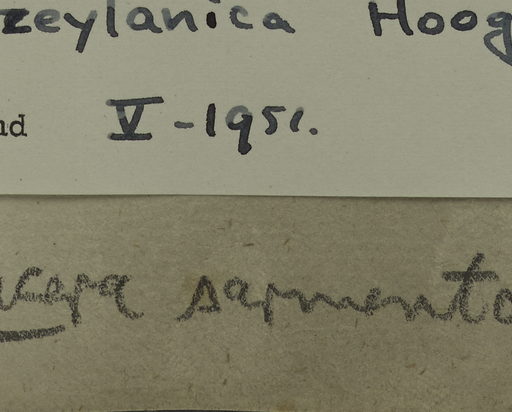 zeylanica Hoog
nd V-1951.
acera sarmento